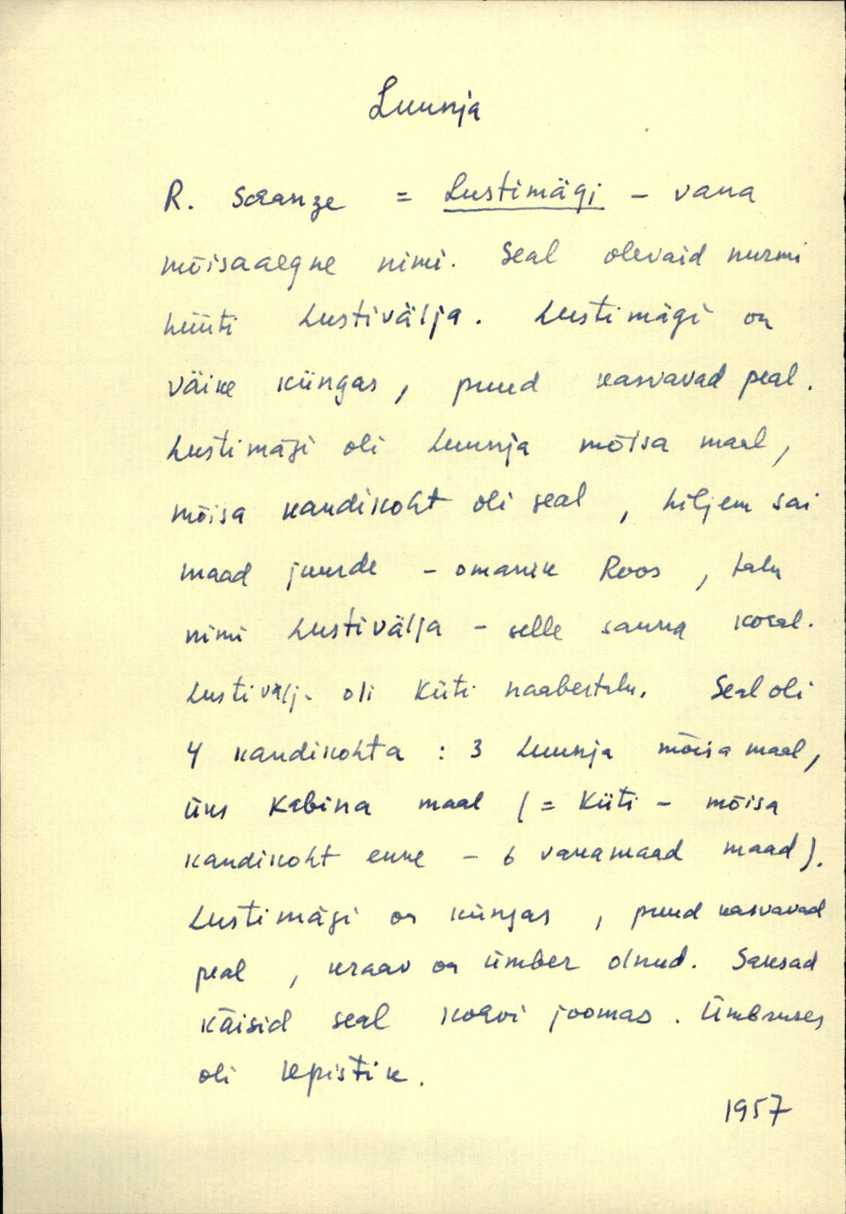 Luunja
R. Schanze = Lustimägi – vana
mõisaaegne nimi. Seal olevaid nurmi
hüüti Lustivälja. Lustimägi on
väike küngas, puud kasvavad peal.
Lustimägi oli Luunja mõisa maal,
mõisa kandikoht oli seal, hiljem sai
maad juurde – omanik Roos, talu
nimi Lustivälja – selle sauna kohal.
Lustivälj. oli Küti naabertalu. Seal oli
4 kandikohta : 3 Luunja mõisa maal,
üks Kabina maal (= Küti – mõisa
kandikoht enne – 6 vakamaad maad).
Lustimägi on küngas, puud kasvavad
peal, kraav on ümber olnud. Saksad
käisid seal kohvi joomas. Ümbruses
oli lepistik.
1957